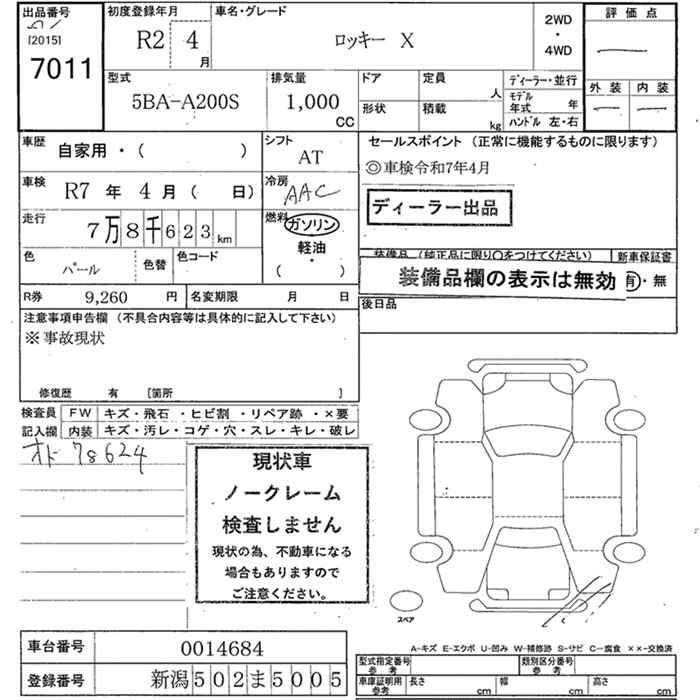 出品番号
[2015]
7011
初度登録年月
R2 4
月
車名・グレード
ロッキー X
2WD
・
4WD
評価点
外装 内装
型式
5BA-A200S
排気量
1,000
CC
ドア
形状
定員
人
積載
kg
ディーラー・並行
モデル年式 年
ハンドル 左・右
車歴
自家用・( )
シフト
AT
車検
R7 年 4 月 ( 日)
冷房
AAC
走行
7万8千623km
燃料
ガソリン
軽油
( ・ )
色
パール
色替
色コード
R券 9,260 円
名変期限 月 日
セールスポイント (正常に機能するものに限ります)
◎車検令和7年4月
ディーラー出品
装備品 (純正品に限り○をつけてください)
新車保証書
装備品欄の表示は無効
有・無
後日品
注意事項申告欄 (不具合内容等は具体的に記入して下さい)
※事故現状
修復歴 有 [箇所 ]
検査員
記入欄
FW キズ・飛石 ・ヒビ割 ・リペア跡 ・×要
内装 キズ・汚レ・コゲ・穴・スレ・キレ・破レ
オド 78624
現状車
ノークレーム
検査しません
現状の為、不動車になる
場合もありますので
ご注意ください。
スペア
A-キズ E-エクボ U-凹み W-補修跡 S-サビ C-腐食 ××-交換済
車台番号 0014684
登録番号 新潟502ま5005
型式指定番号
参考
類別区分番号
参考
車庫証明用
参考
長さ cm
幅 cm
高さ cm